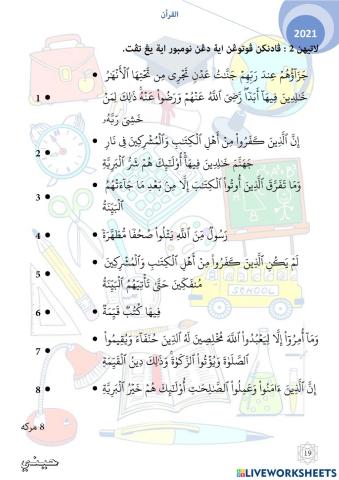 القرأن
2021
لاتيهن 2 : ڤادنكن ڤوتوڠن اية دڠن نومبور اية يڠ تڤت.
جَزَآؤُهُمْ عِندَ رَبِّهِمْ جَنَّٰتُ عَدْنٍ تَجْرِى مِن تَحْتِهَا ٱلْأَنْهَٰرُ
1 خَٰلِدِينَ فِيهَآ أَبَدًا ۖ رَّضِىَ ٱللَّهُ عَنْهُمْ وَرَضُوا۟ عَنْهُ ۚ ذَٰلِكَ لِمَنْ
خَشِىَ رَبَّهُۥ
إِنَّ ٱلَّذِينَ كَفَرُوا۟ مِنْ أَهْلِ ٱلْكِتَٰبِ وَٱلْمُشْرِكِينَ فِى نَارِ
2 جَهَنَّمَ خَٰلِدِينَ فِيهَآ ۚ أُو۟لَٰٓئِكَ هُمْ شَرُّ ٱلْبَرِيَّةِ
وَمَا تَفَرَّقَ ٱلَّذِينَ أُوتُوا۟ ٱلْكِتَٰبَ إِلَّا مِنۢ بَعْدِ مَا جَآءَتْهُمُ
3 ٱلْبَيِّنَةُ
4 رَسُولٌ مِّنَ ٱللَّهِ يَتْلُوا۟ صُحُفًا مُّطَهَّرَةً
لَمْ يَكُنِ ٱلَّذِينَ كَفَرُوا۟ مِنْ أَهْلِ ٱلْكِتَٰبِ وَٱلْمُشْرِكِينَ
5 مُنفَكِّينَ حَتَّىٰ تَأْتِيَهُمُ ٱلْبَيِّنَةُ
6 فِيهَا كُتُبٌ قَيِّمَةٌ
وَمَآ أُمِرُوٓا۟ إِلَّا لِيَعْبُدُوا۟ ٱللَّهَ مُخْلِصِينَ لَهُ ٱلدِّينَ حُنَفَآءَ وَيُقِيمُوا۟
7 ٱلصَّلَوٰةَ وَيُؤْتُوا۟ ٱلزَّكَوٰةَ ۚ وَذَٰلِكَ دِينُ ٱلْقَيِّمَةِ
8 إِنَّ ٱلَّذِينَ ءَامَنُوا۟ وَعَمِلُوا۟ ٱلصَّٰلِحَٰتِ أُو۟لَٰٓئِكَ هُمْ خَيْرُ ٱلْبَرِيَّةِ
8 مركه
19
SCHOOL
LIVEWORKSHEETS